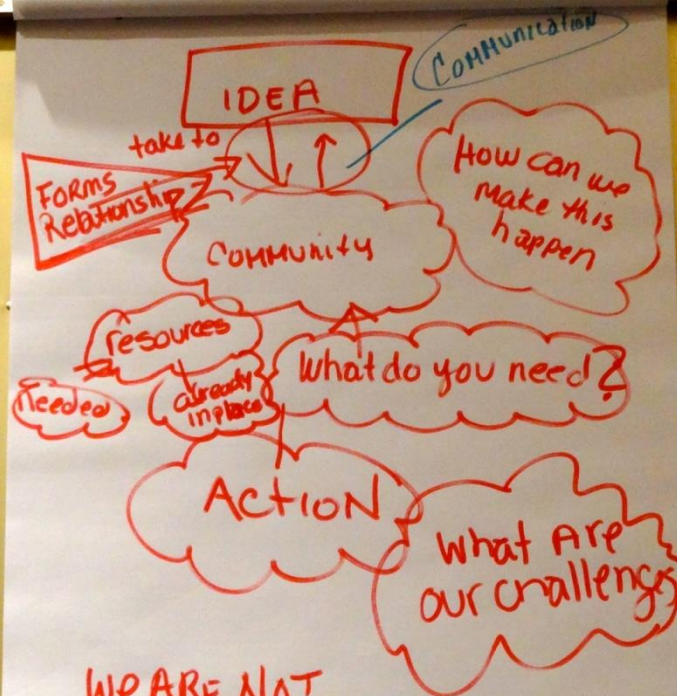 Communication
IDEA
take to
FORMS
Relationship
How can we
make this
happen
Community
resources
already
in place
needed
What do you need?
ACTION
What Are
our challenges
WE ARE NOT